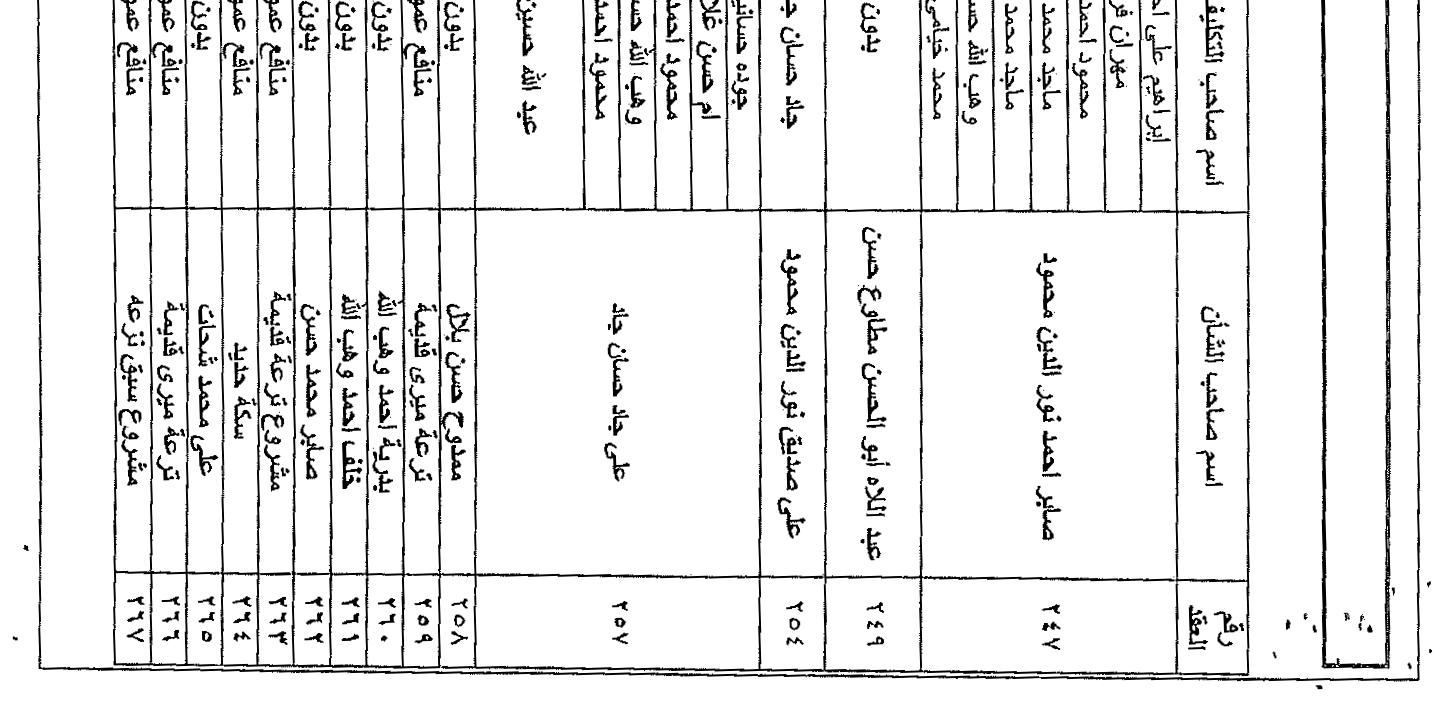 رقم العقد اسم صاحب الشأن اسم صاحب التكليف
٢٤٧ صابر احمد نور الدين محمود
ابراهيم على
مهران
محمود احمد
ماجد محمد
ماجد محمد
وهب الله
محمد
٢٤٩ عبد اللاه أبو الحسن مطاوع حسن بدون
٢٥٤ على صديق نور الدين محمود جاد حسان
٢٥٧ على جاد حسان جاد
جوده
ام حسن
محمود احمد
وهب الله
محمود احمد
عبد الله حسين
٢٥٨ ممدوح حسن بلال بدون
٢٥٩ ترعة ميرى قديمة منافع
٢٦٠ بدرية احمد وهب الله بدون
٢٦١ خلف احمد وهب الله بدون
٢٦٢ صابر محمد حسن بدون
٢٦٣ مشروع ترعة قديمة منافع
٢٦٤ سكة حديد منافع
٢٦٥ على محمد شحات بدون
٢٦٦ ترعة ميرى قديمة منافع
٢٦٧ مشروع سبق نزعه منافع